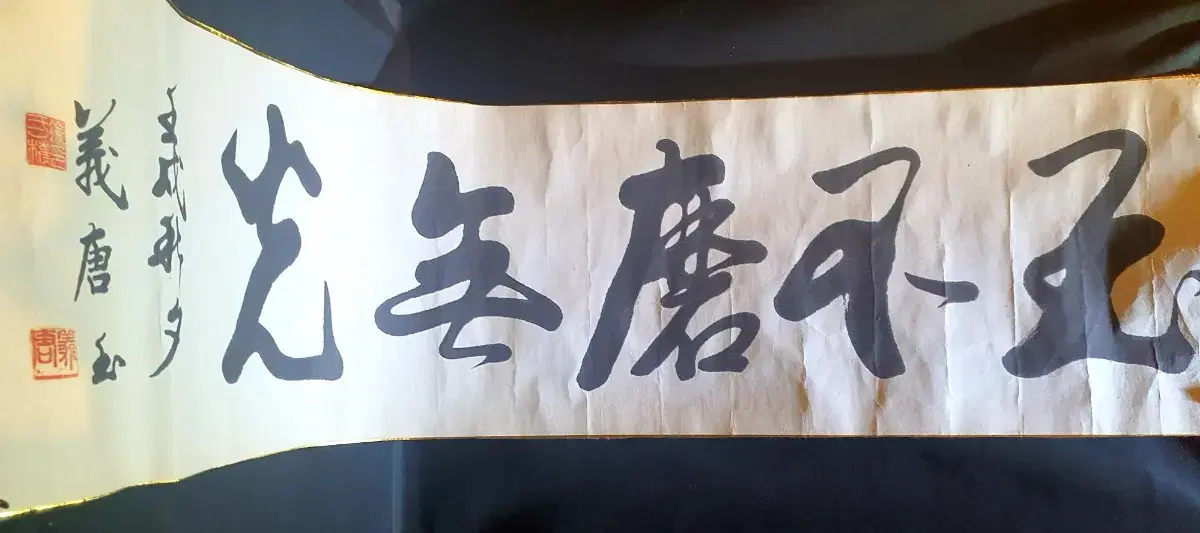 玉不磨無光
壬戌秋夕
義唐
義唐